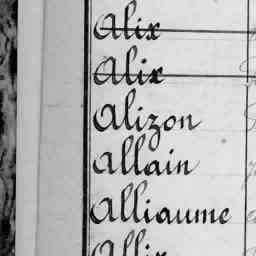 Alix
Alix
Alizon
Allain
Alliaume
Allix